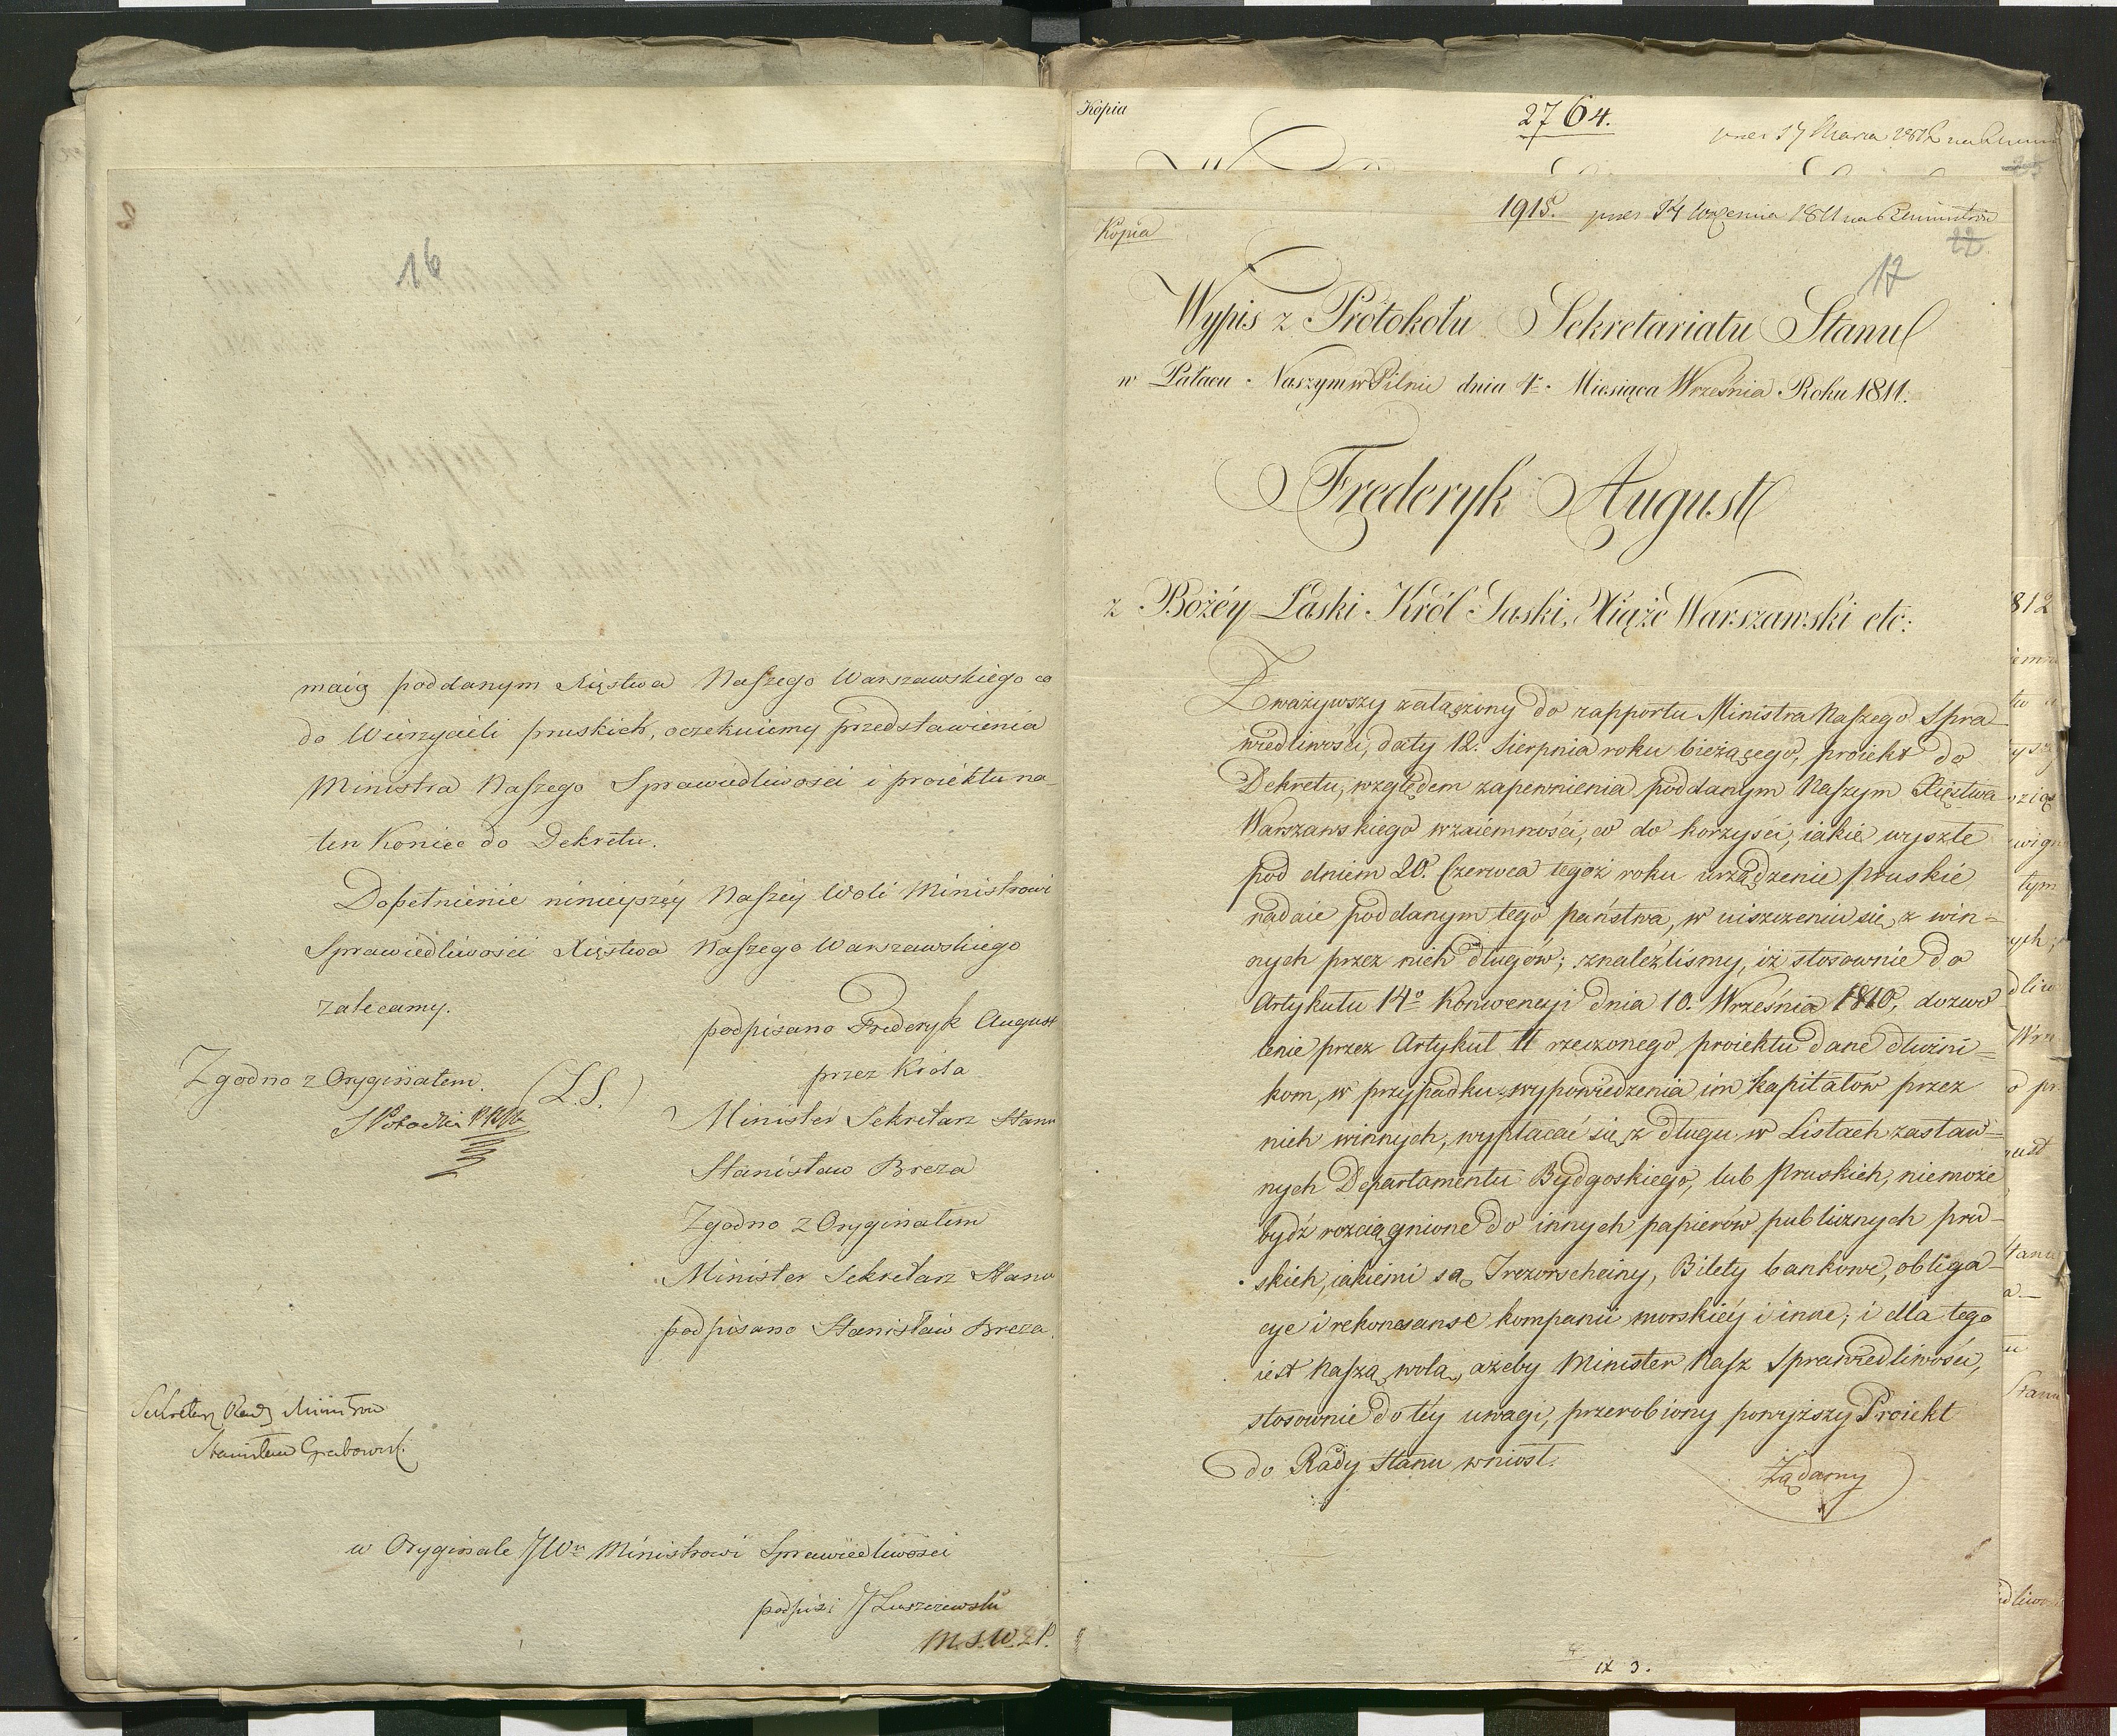 16
maią poddanym Xięstwa Naszego Warszawskiego co
do Wierzycieli pruskich, oczekuiemy przedstawienia
Ministra Naszego Sprawiedliwosci i proiektu na
ten Koniec do Dekretu.
Dopełnienie ninieyszéy Naszey Woli Ministrowi
Sprawiedliwosci Xięstwa Naszego Warszawskiego
zalecamy.
podpisano Frederyk August
przez Króla
Minister Sekretarz Stanu
Stanisław Breza
Zgodno z Oryginałem
Minister Sekretarz Stanu
podpisano Stanisław Breza
Zgodno z Oryginałem.
(L.S.)
Sekretarz Rady Ministrów
Stanisław Grabowski
w Oryginale JWu Ministrowi Sprawiedliwosci
podpisi J Łuszczewski
M.S.W.
Kópia
2764.
1812 na
1915. prses 14 Września 1811 na
Kópia
22
17
Wypis z Protokołu Sekretariatu Stanu
w Pałacu Naszym w Pilnic dnia 4. Miesiąca Września Roku 1811.
Frederyk August
z Bożéy Łaski Król Saski, Xiążę Warszawski etc:
Zważywszy załączony do rapportu Ministra Naszego Spra-
wiedliwości, daty 12. Sierpnia roku bieżącego, proiekt do
Dekretu, względem zapewnienia poddanym Naszym Xięstwa
Warszawskiego wzaiemności, co do korzyści, iakie wyszłe
pod dniem 20. Czerwca tegoż roku urządzenie pruskie
nadaie poddanym tego państwa, w uiszczeniu się z win=
nych przez nich długów; znaleźlismy, iż stosownie do
Artykułu 14o Konwencyi dnia 10. Września 1810, dozwo
lenie przez Artykuł II rzeczonego proiektu dane dłużni=
kom, w przypadku wypowiedzenia im kapitałów przez
nich winnych, wypłacać się z długu w Listach zastaw=
nych Departamentu Bydgoskiego, lub pruskich, niemoże
bydź rozciągnione do innych papierów publicznych pru-
skich, iakiemi są Trezorscheiny, Bilety bankowe, obliga-
cye i rekonesanse kompanii morskiéy i inne; i dla tego
iest Naszą wolą, ażeby Minister Nasz Sprawiedliwości,
stosownie do téy uwagi, przerobiony powyższy Proiekt
do Rady Stanu wniosł.
Żądamy
IX 3.